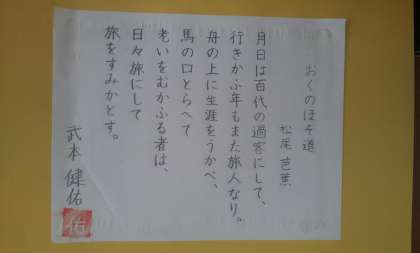 おくのほそ道
松尾 芭蕉
月日は百代の過客にして、
行きかふ年もまた旅人なり。
舟の上に生涯をうかべ、
馬の口とらへて
老いをむかふる者は、
日々旅にして
旅をすみかとす。
武本 健佑
佑